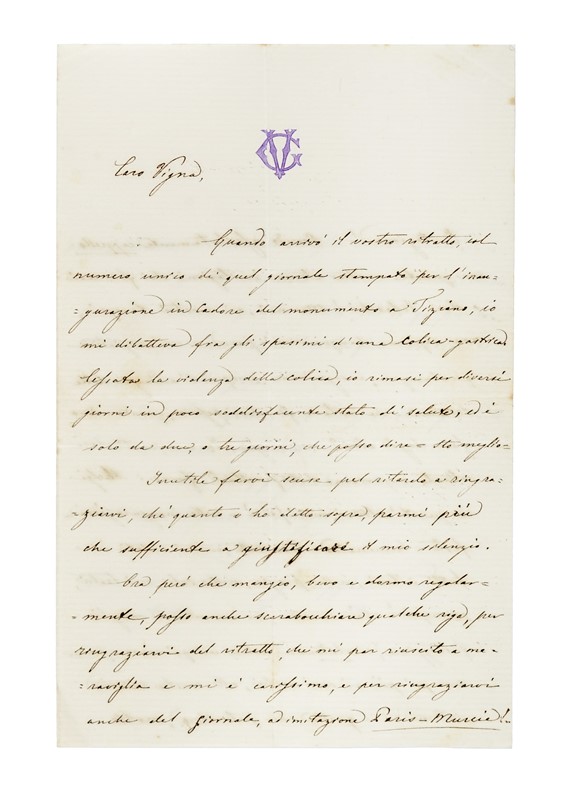 VG
Caro Vigna,
Quando arrivó il vostro ritratto, col
numero unico di quel giornale stampato per l'inau=
=gurazione in Cadore del monumento a Tiziano, io
mi dibatteva fra gli spasimi d'una colica-gastrica.
Cessata la violenza della colica, io rimasi per diversi
giorni in poco soddisfacente stato di salute, ed è
solo da due, o tre giorni, che posso dire = sto meglio =
Inutile farvi scuse pel ritardo a ringra=
=ziarvi, ché quanto v'ho detto sopra, parmi piú
che sufficiente a giustificare il mio silenzio.
Ora peró che mangio, bevo e dormo regolar=
=mente, posso anche scarabocchiare qualche riga, per
ringraziarvi del ritratto, che mi par riuscito a me=
=raviglia e mi é carissimo, e per ringraziarvi
anche del giornale, ad imitazione Paris-Murcie!_